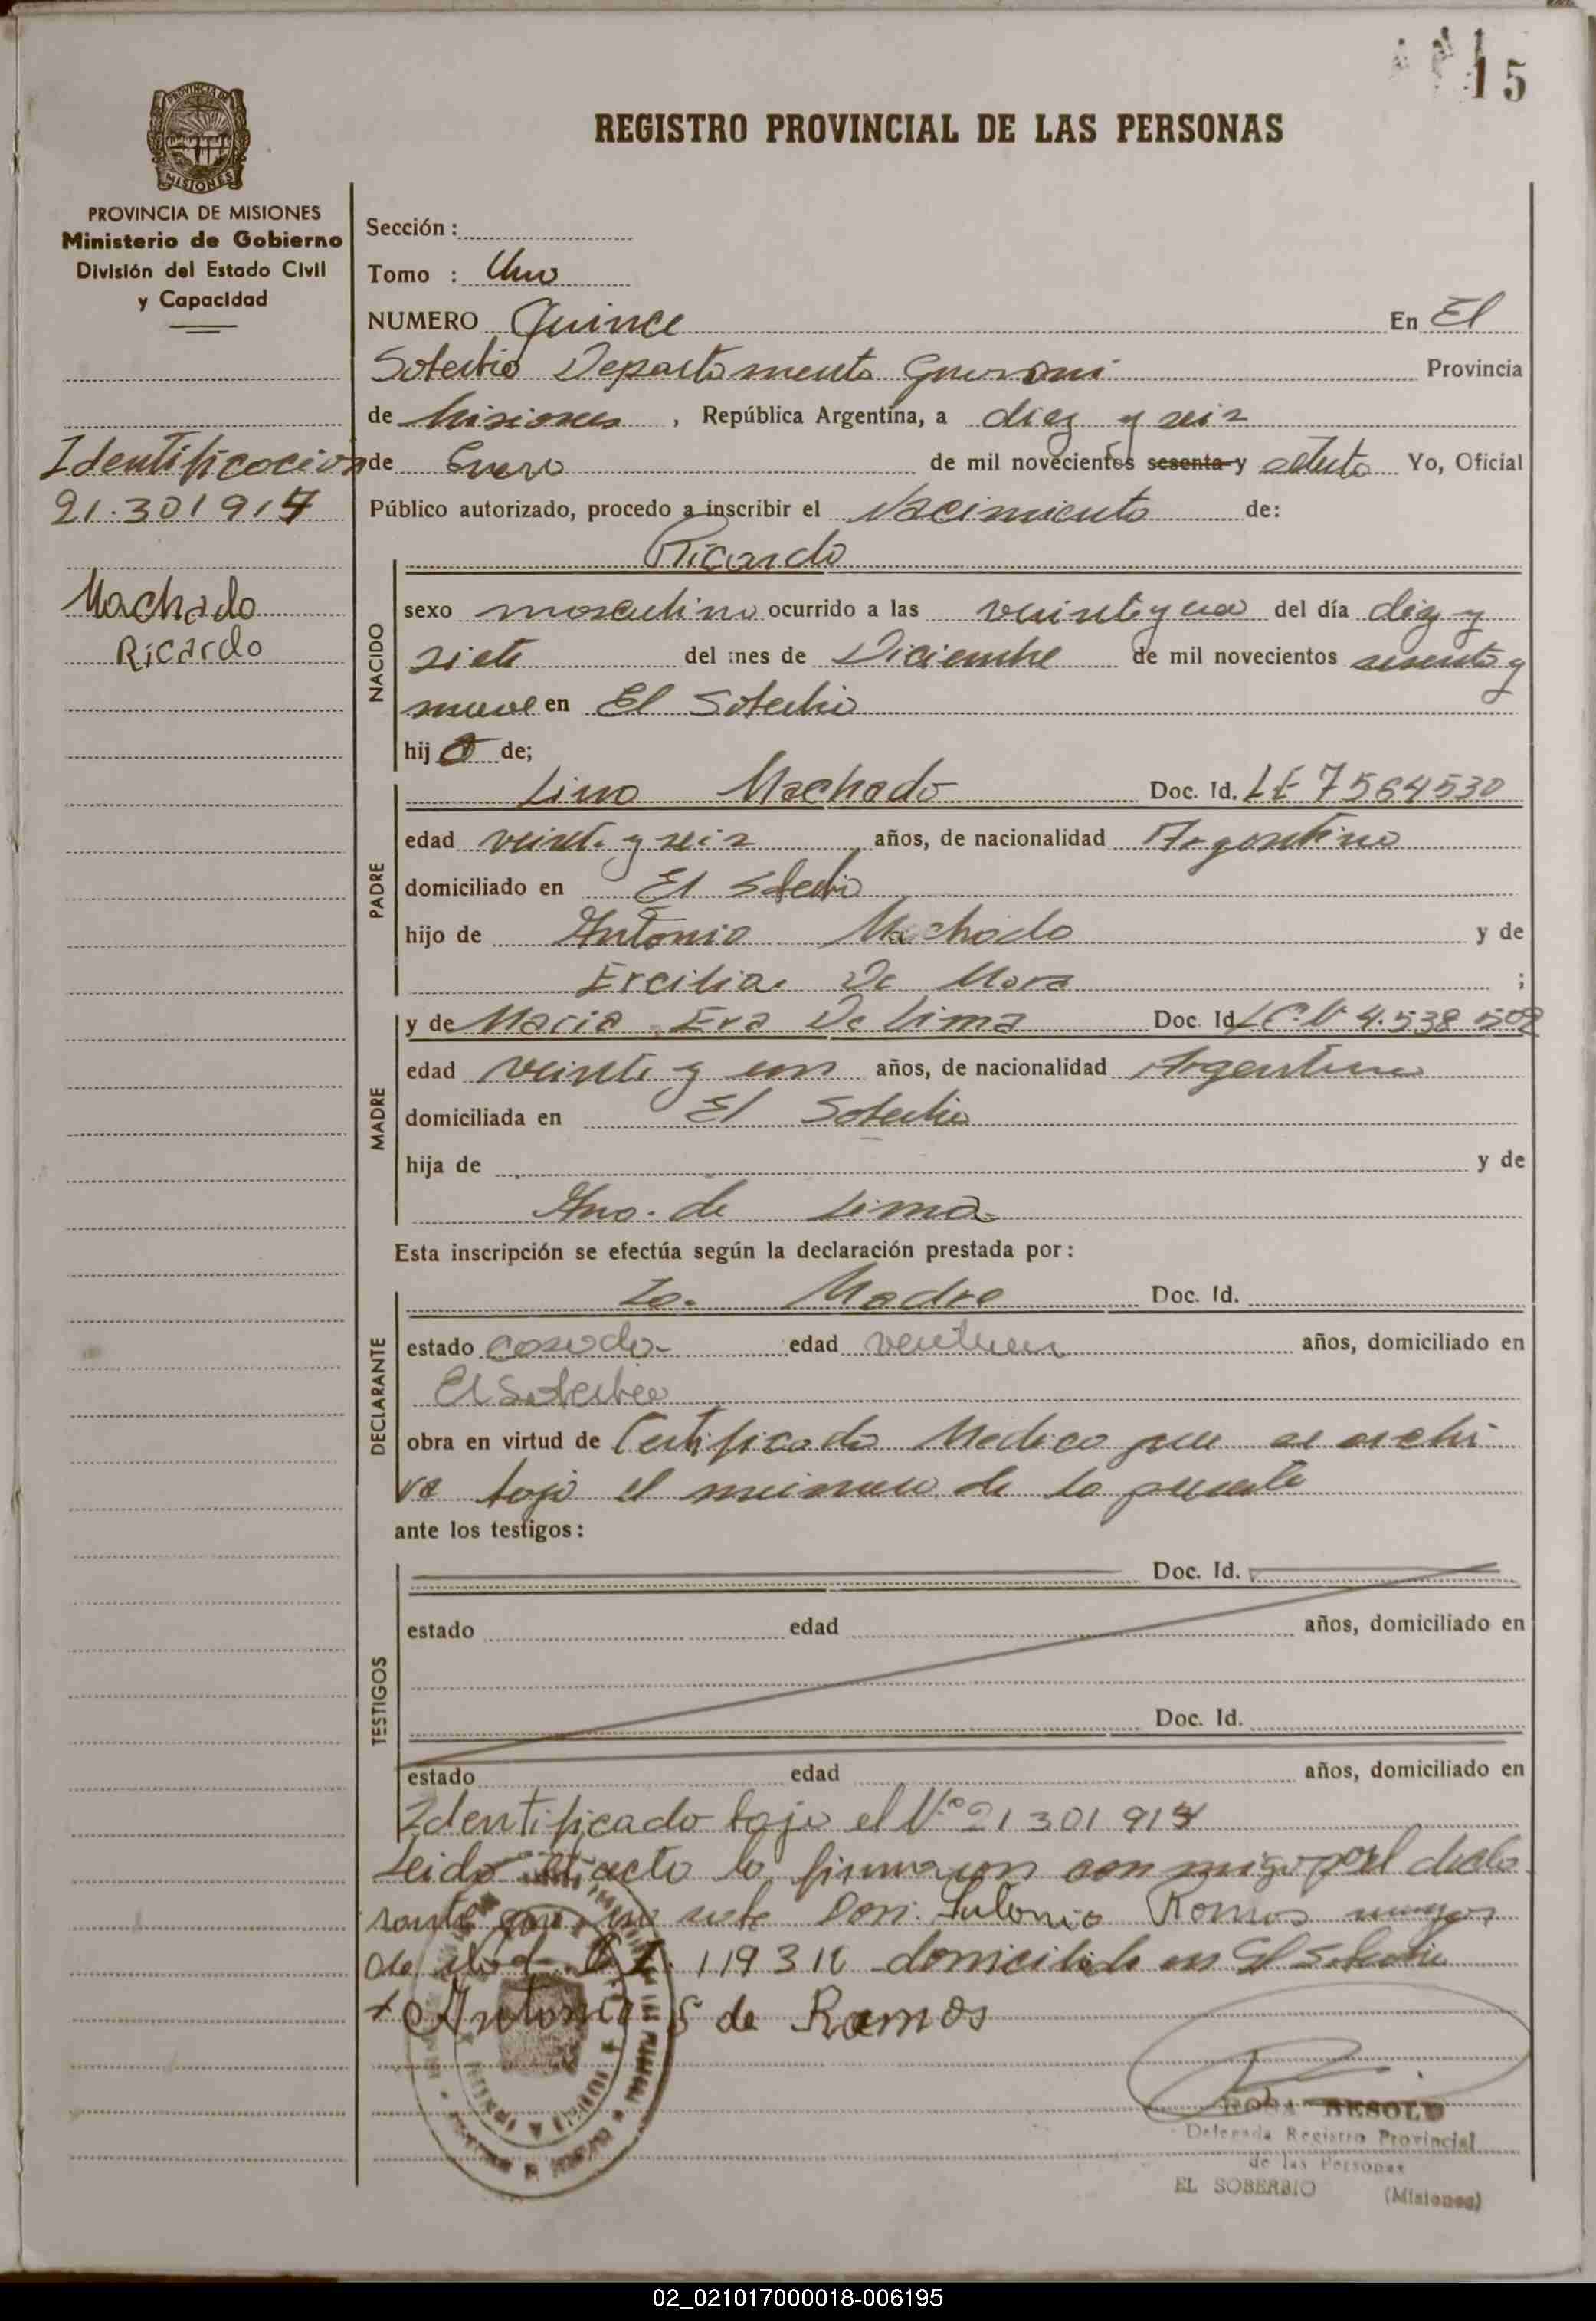 15
REGISTRO PROVINCIAL DE LAS PERSONAS
PROVINCIA DE MISIONES
MISIONES
PROVINCIA DE MISIONES
Ministerio de Gobierno
División del Estado Civil
y Capacidad
Identificacion
21.301917
Machado
Ricardo
Sección :
Tomo : Uno
NUMERO Quince En El
Soberbio Departamento Guarani Provincia
de Misiones , República Argentina, a diez y seis
de Enero de mil novecientos sesenta y setenta Yo, Oficial
Público autorizado, procedo a inscribir el Nacimiento de:
Ricardo
NACIDO
sexo masculino ocurrido a las veinte y una del día diez y
siete del mes de Diciembre de mil novecientos sesenta y
nueve en El Soberbio
hij o de;
PADRE
Lino Machado Doc. Id. LE 7564530
edad veinte y seis años, de nacionalidad Argentino
domiciliado en El Soberbio
hijo de Antonio Machado y de
Ercilia De Mora ;
MADRE
y de Maria Eva De Lima Doc. Id LC.N 4.538.502
edad veinte y un años, de nacionalidad Argentina
domiciliada en El Soberbio
hija de y de
Ana de Lima
Esta inscripción se efectúa según la declaración prestada por:
DECLARANTE
La Madre Doc. Id.
estado casada edad ventiun años, domiciliado en
El Soberbio
obra en virtud de Certificado Medico que se archi
va bajo el numero de la presente
ante los testigos:
TESTIGOS
Doc. Id.
estado edad años, domiciliado en
Doc. Id.
estado edad años, domiciliado en
Identificado bajo el Nº 21 301 917
Leido el acto la firmaron con migo por el decla
rante que no sabe Don. Antonio Ramos mayor
de edad C.I. domiciliado en El Soberbio
x Antonio S de Ramos
ROSA BESOLD
Delegada Registro Provincial
de las Personas
EL SOBERBIO (Misiones)
02_021017000018-006195